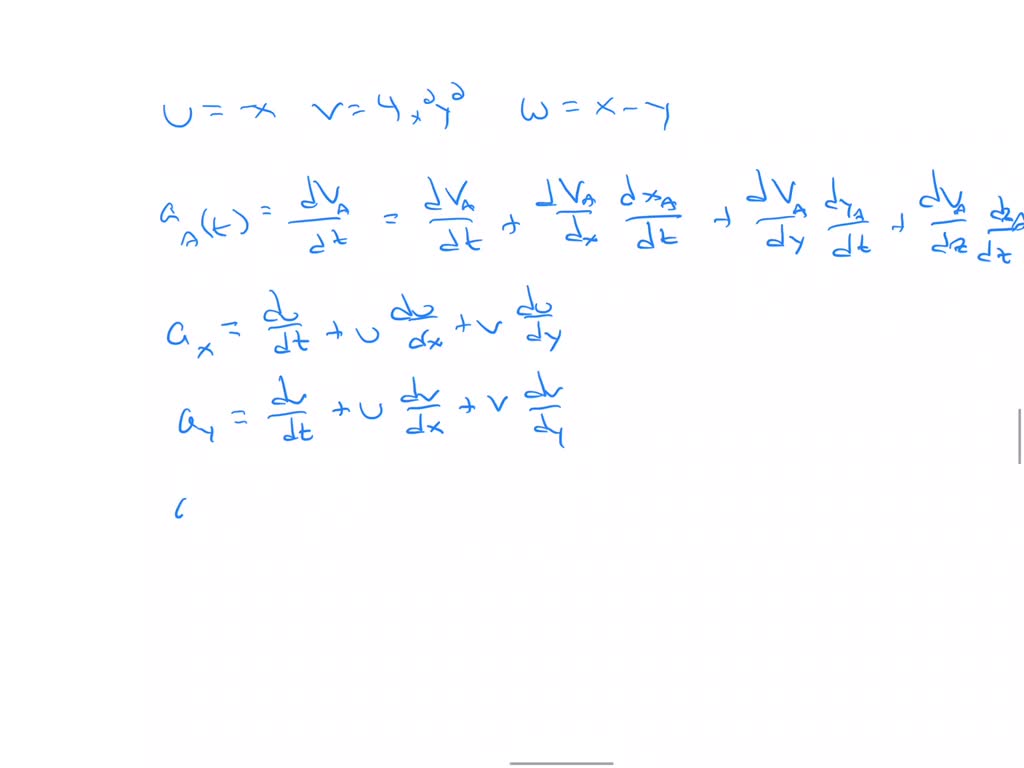 u = -x v = 4x²y² w = x - y
a_A(t) = dV_A/dt = dV_A/dt + dV_A/dx dx_A/dt + dV_A/dy dy_A/dt + dV_A/dz dz_A/dt
a_x = du/dt + u du/dx + v du/dy
a_y = dv/dt + u dv/dx + v dv/dy